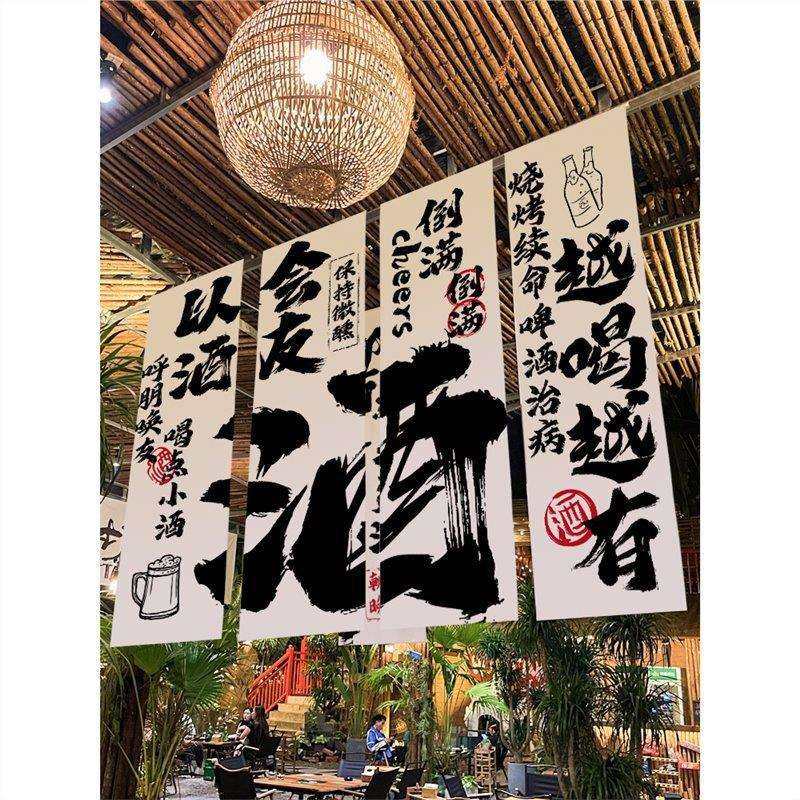 以酒
呼朋唤友
喝点小酒
会友
保持微醺
酒
倒满
倒满
cheers
烧烤续命啤酒治病
越喝越有
酒